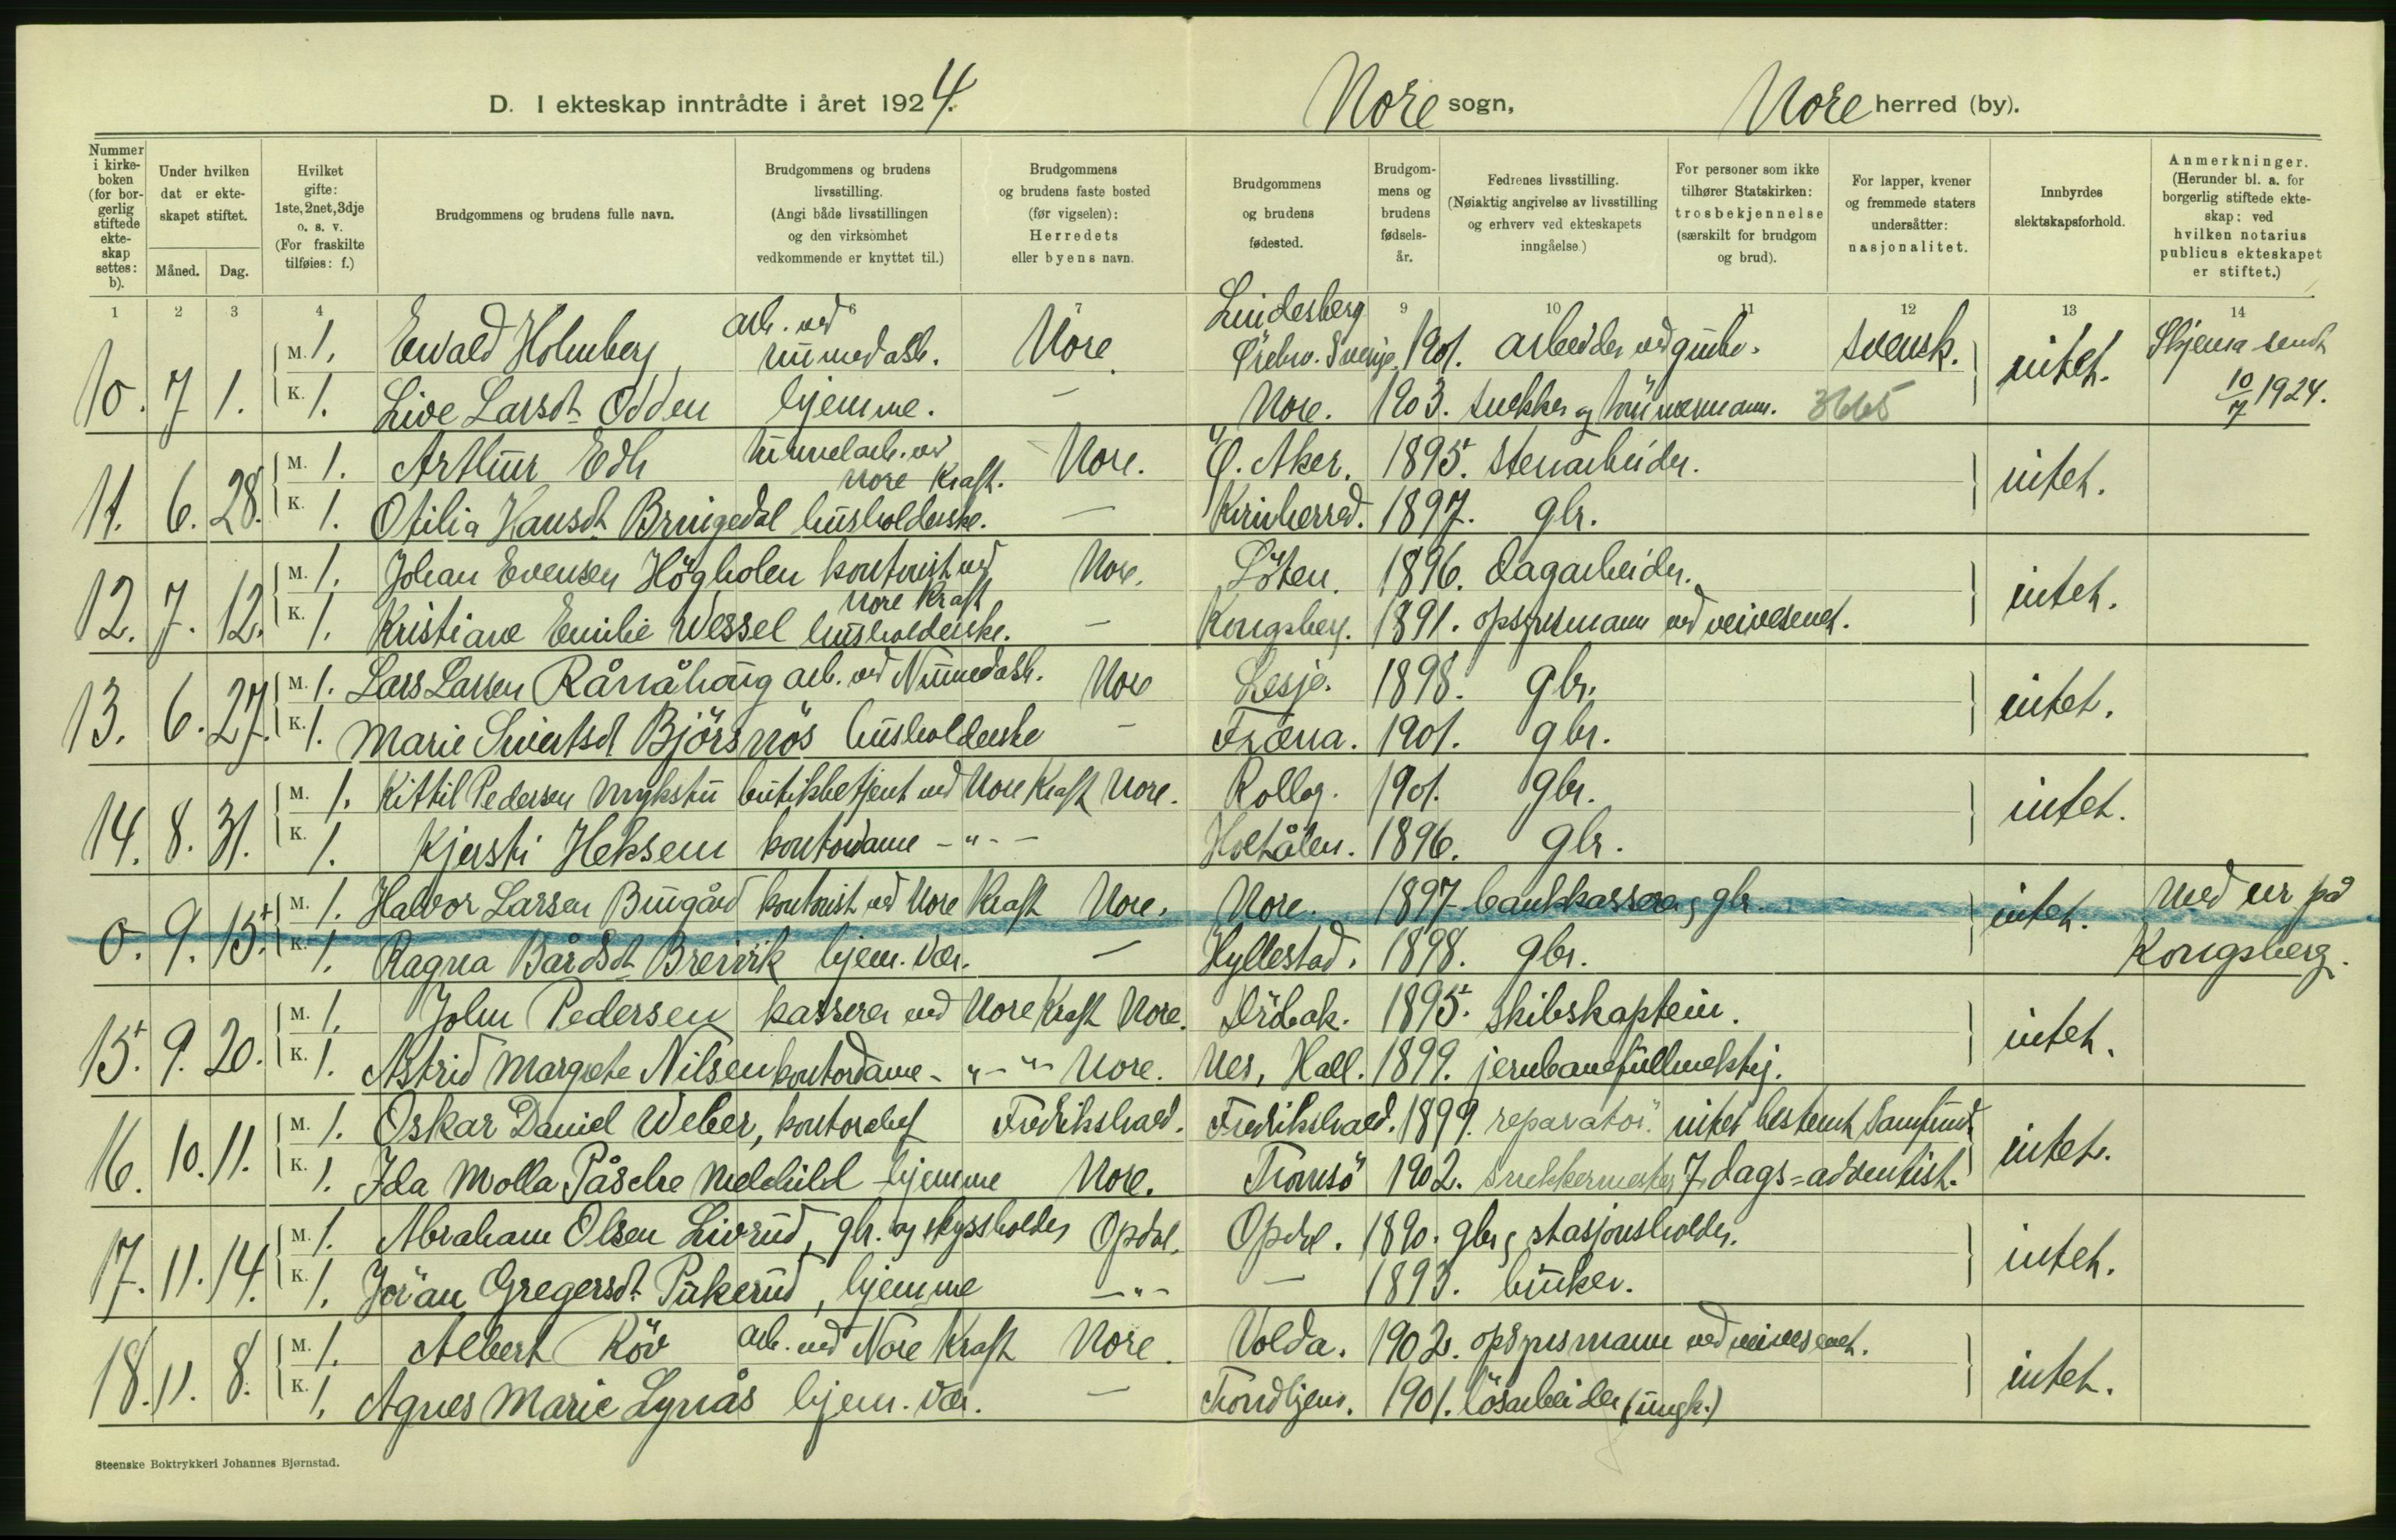 D. I ekteskap inntrådte i året 1924. Nore sogn, Nore herred (by).
Nummer i kirkeboken (for borgerlig stiftede ekteskap settes: b).
Under hvilken dat er ekteskapet stiftet.
Måned. Dag.
Hvilket gifte: 1ste, 2net, 3dje o. s. v. (For fraskilte tilføies: f.)
Brudgommens og brudens fulle navn.
Brudgommens og brudens livsstilling. (Angi både livsstillingen og den virksomhet vedkommende er knyttet til.)
Brudgommens og brudens faste bosted (før vigselen): Herredets eller byens navn.
Brudgommens og brudens fødested.
Brudgommens og brudens fødselsår.
Fedrenes livsstilling. (Nøiaktig angivelse av livsstilling og erhverv ved ekteskapets inngåelse.)
For personer som ikke tilhører Statskirken: trosbekjennelse (særskilt for brudgom og brud).
For lapper, kvener og fremmede staters undersåtter: nasjonalitet.
Innbyrdes slektskapsforhold.
Anmerkninger. (Herunder bl. a. for borgerlig stiftede ekteskap: ved hvilken notarius publicus ekteskapet er stiftet.)
1 2 3 4 6 7 9 10 11 12 13 14
10. 7 1. M. 1. Ewald Holmberg, arb. ved Numedalb. Nore. Lindesberg Örebro. Sverige. 1901. arbeider ved grube. svensk. intet. Skjema sendt 10/7 1924.
K. 1. Live Larsdt Odden hjemme. — Nore. 1903. snekker og tömmermann. 3665
11. 6. 28. M. 1. Arthur Edh tunnelarb. ved Nore Kraft. Nore. Ö. Aker. 1895. stenarbeider. intet.
K. 1. Otilia Hansdt Bringedal husholderske. — Kvinherred. 1897. gbr.
12. 7. 12. M. 1. Johan Evensen Högholen kontorist ved Nore Kraft Nore. Löten. 1896. dagarbeider. intet.
K. 1. Kristiane Emilie Wessel husholderske. — Kongsberg. 1891. opsynsmann ved veivesenet.
13. 6. 27. M. 1. Lars Larsen Rånåhaug arb. ved Numedalb. Nore Lesje. 1898. gbr. intet.
K. 1. Marie Sivertsdt Björsnös husholderske — Fræna. 1901. gbr.
14. 8. 31. M. 1. Kittil Pedersen Mykstu butikbetjent ved Nore Kraft Nore. Rollag. 1901. gbr. intet.
K. 1. Kjersti Heksem kontordame - " - — Holtålen. 1896. gbr.
0. 9. 15. M. 1. Halvor Larsen Bugård kontorist ved Nore Kraft Nore. Nore. 1897 bankkasserer og gbr. intet. Med er på Kongsberg.
K. 1. Ragna Bårdsdt Breivik hjem. vær. — Hyllestad. 1898. gbr.
15. 9. 20. M. 1. John Pedersen kasserer ved Nore Kraft Nore. Dröbak. 1895. skibskaptein. intet.
K. 1. Astrid Margrete Nilsen kontordame - " - " - Nore. Nes, Hall. 1899. jernbanefullmektig.
16. 10. 11. M. 1. Oskar Daniel Weber, kontorchef Fredrikshald. Fredrikshald. 1899. reparatör. intet bestemt Samfund intet.
K. 1. Ida Molla Påsche Melchild hjemme Nore. Tromsö 1902. snekkermester 7. dags=adventist.
17. 11. 14. M. 1. Abraham Olsen Livrud, gbr. og skyssholder Opdal. Opdal. 1890. gbr og stasjonsholder. intet.
K. 1. Jöran Gregersdt Pukerud, hjemme - " - — 1893. buiker.
18. 11. 8. M. 1. Albert Röv arb. ved Nore Kraft Nore. Volda. 1902. opsynsmann ved veivesenet. intet.
K. 1. Agnes Marie Lynås hjem. vær. — Trondhjem. 1901. lösarbeider (ungk.)
Steenske Boktrykkeri Johannes Bjørnstad.